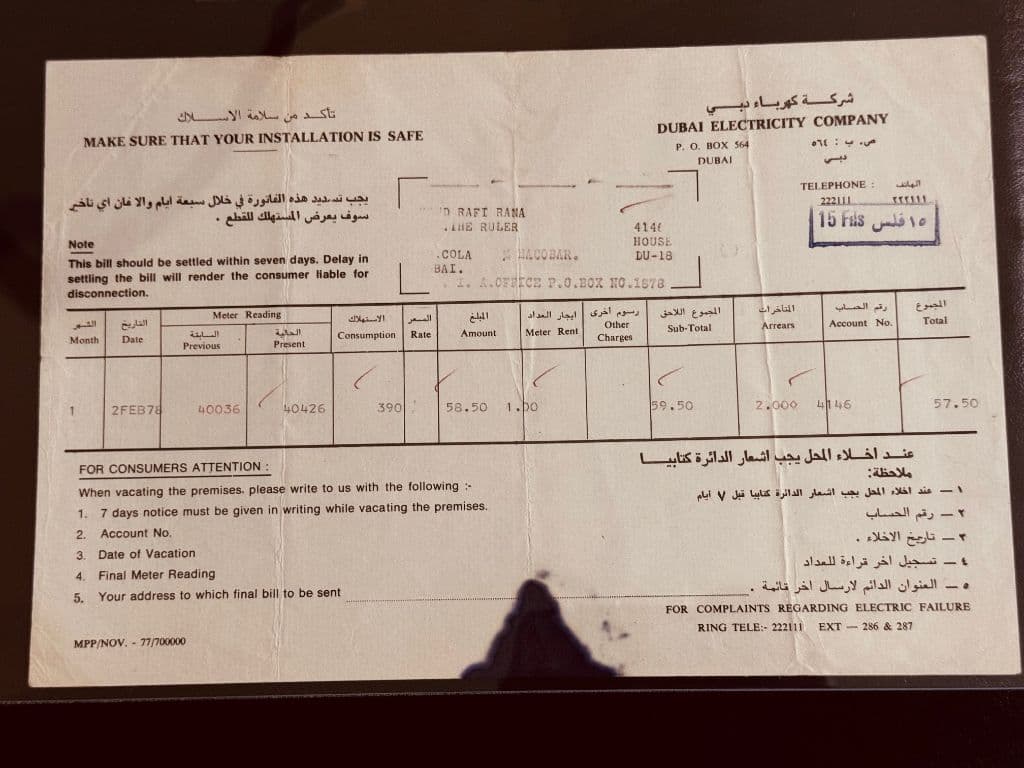 تأكد من سلامة الاسلاك
MAKE SURE THAT YOUR INSTALLATION IS SAFE
شركة كهرباء دبي
DUBAI ELECTRICITY COMPANY
P. O. BOX 564
ص . ب : ٥٦٤
DUBAI
دبي
TELEPHONE :
الهاتف
222111
٢٢٢١١١
15 Fils ١٥ فلس
يجب تسديد هذه الفاتورة في خلال سبعة ايام والا فان اي تاخير
سوف يعرض المستهلك للقطع .
Note
This bill should be settled within seven days. Delay in
settling the bill will render the consumer liable for
disconnection.
RAFI RANA
.THE RULER 4146
HOUSE
.COLA MACOBAR. DU-18
BAI.
A.OFFICE P.O.BOX NO.1878
الشهر
Month
التاريخ
Date
Meter Reading
السابقة
Previous
الحالية
Present
الاستهلاك
Consumption
السعر
Rate
المبلغ
Amount
ايجار العداد
Meter Rent
رسوم اخرى
Other
Charges
المجموع اللاحق
Sub-Total
المتاخرات
Arrears
رقم الحساب
Account No.
المجموع
Total
1 2FEB78 40036 40426 390 58.50 1.00 59.50 2.000 4146 57.50
FOR CONSUMERS ATTENTION :
When vacating the premises, please write to us with the following :-
1. 7 days notice must be given in writing while vacating the premises.
2. Account No.
3. Date of Vacation
4. Final Meter Reading
5. Your address to which final bill to be sent
عند اخلاء المحل يجب اشعار الدائرة كتابيا
ملاحظة:
١ — عند اخلاء المحل يجب اشعار الدائرة كتابيا قبل ٧ ايام
٢ — رقم الحساب
٣ — تاريخ الاخلاء .
٤ — تسجيل اخر قراءة للعداد
٥ — العنوان الدائم لارسال اخر قائمة .
FOR COMPLAINTS REGARDING ELECTRIC FAILURE
RING TELE:- 222111 EXT — 286 & 287
MPP/NOV. - 77/700000